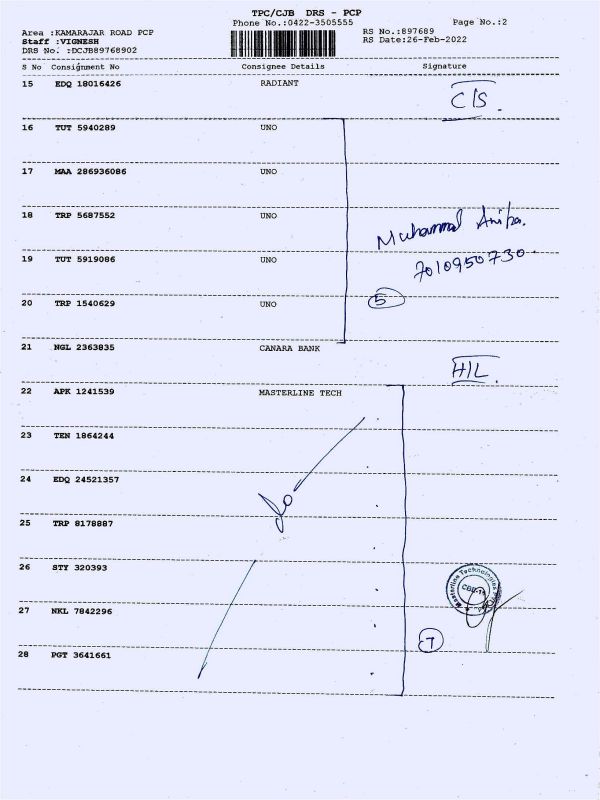 TPC/CJB DRS - PCP
Phone No.:0422-3505555
Page No.:2
Area :KAMARAJAR ROAD PCP
Staff :VIGNESH
DRS No. :DCJB89768902
RS No.:897689
RS Date:26-Feb-2022
S No Consignment No Consignee Details Signature
15 EDQ 18016426 RADIANT
C/S
16 TUT 5940289 UNO
17 MAA 286936086 UNO
18 TRP 5687552 UNO
Muhammad
19 TUT 5919086 UNO
7010950730
20 TRP 1540629 UNO
5
21 NGL 2363835 CANARA BANK
H/L
22 APK 1241539 MASTERLINE TECH
23 TEN 1864244
24 EDQ 24521357
25 TRP 8178887
26 STY 320393
Masterline Technologies
27 NKL 7842296
7
28 PGT 3641661